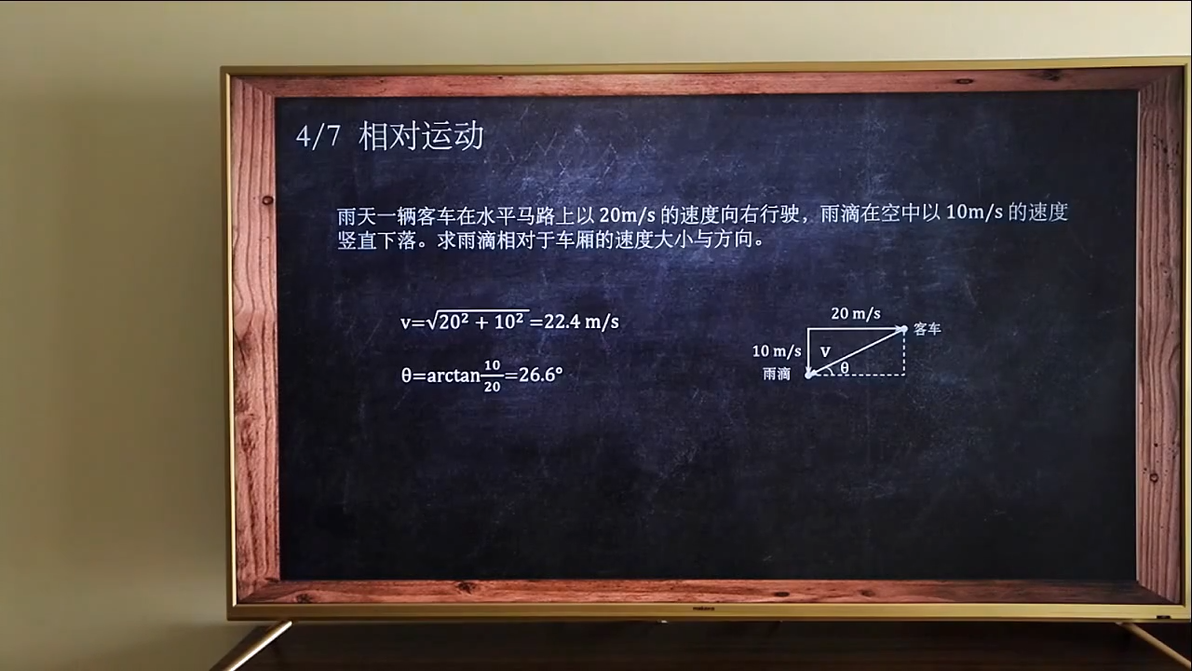 4/7 相对运动
雨天一辆客车在水平马路上以 20m/s 的速度向右行驶，雨滴在空中以 10m/s 的速度
竖直下落。求雨滴相对于车厢的速度大小与方向。
v=√20² + 10²=22.4 m/s
θ=arctan10/20=26.6°
20 m/s
客车
10 m/s
V
θ
雨滴